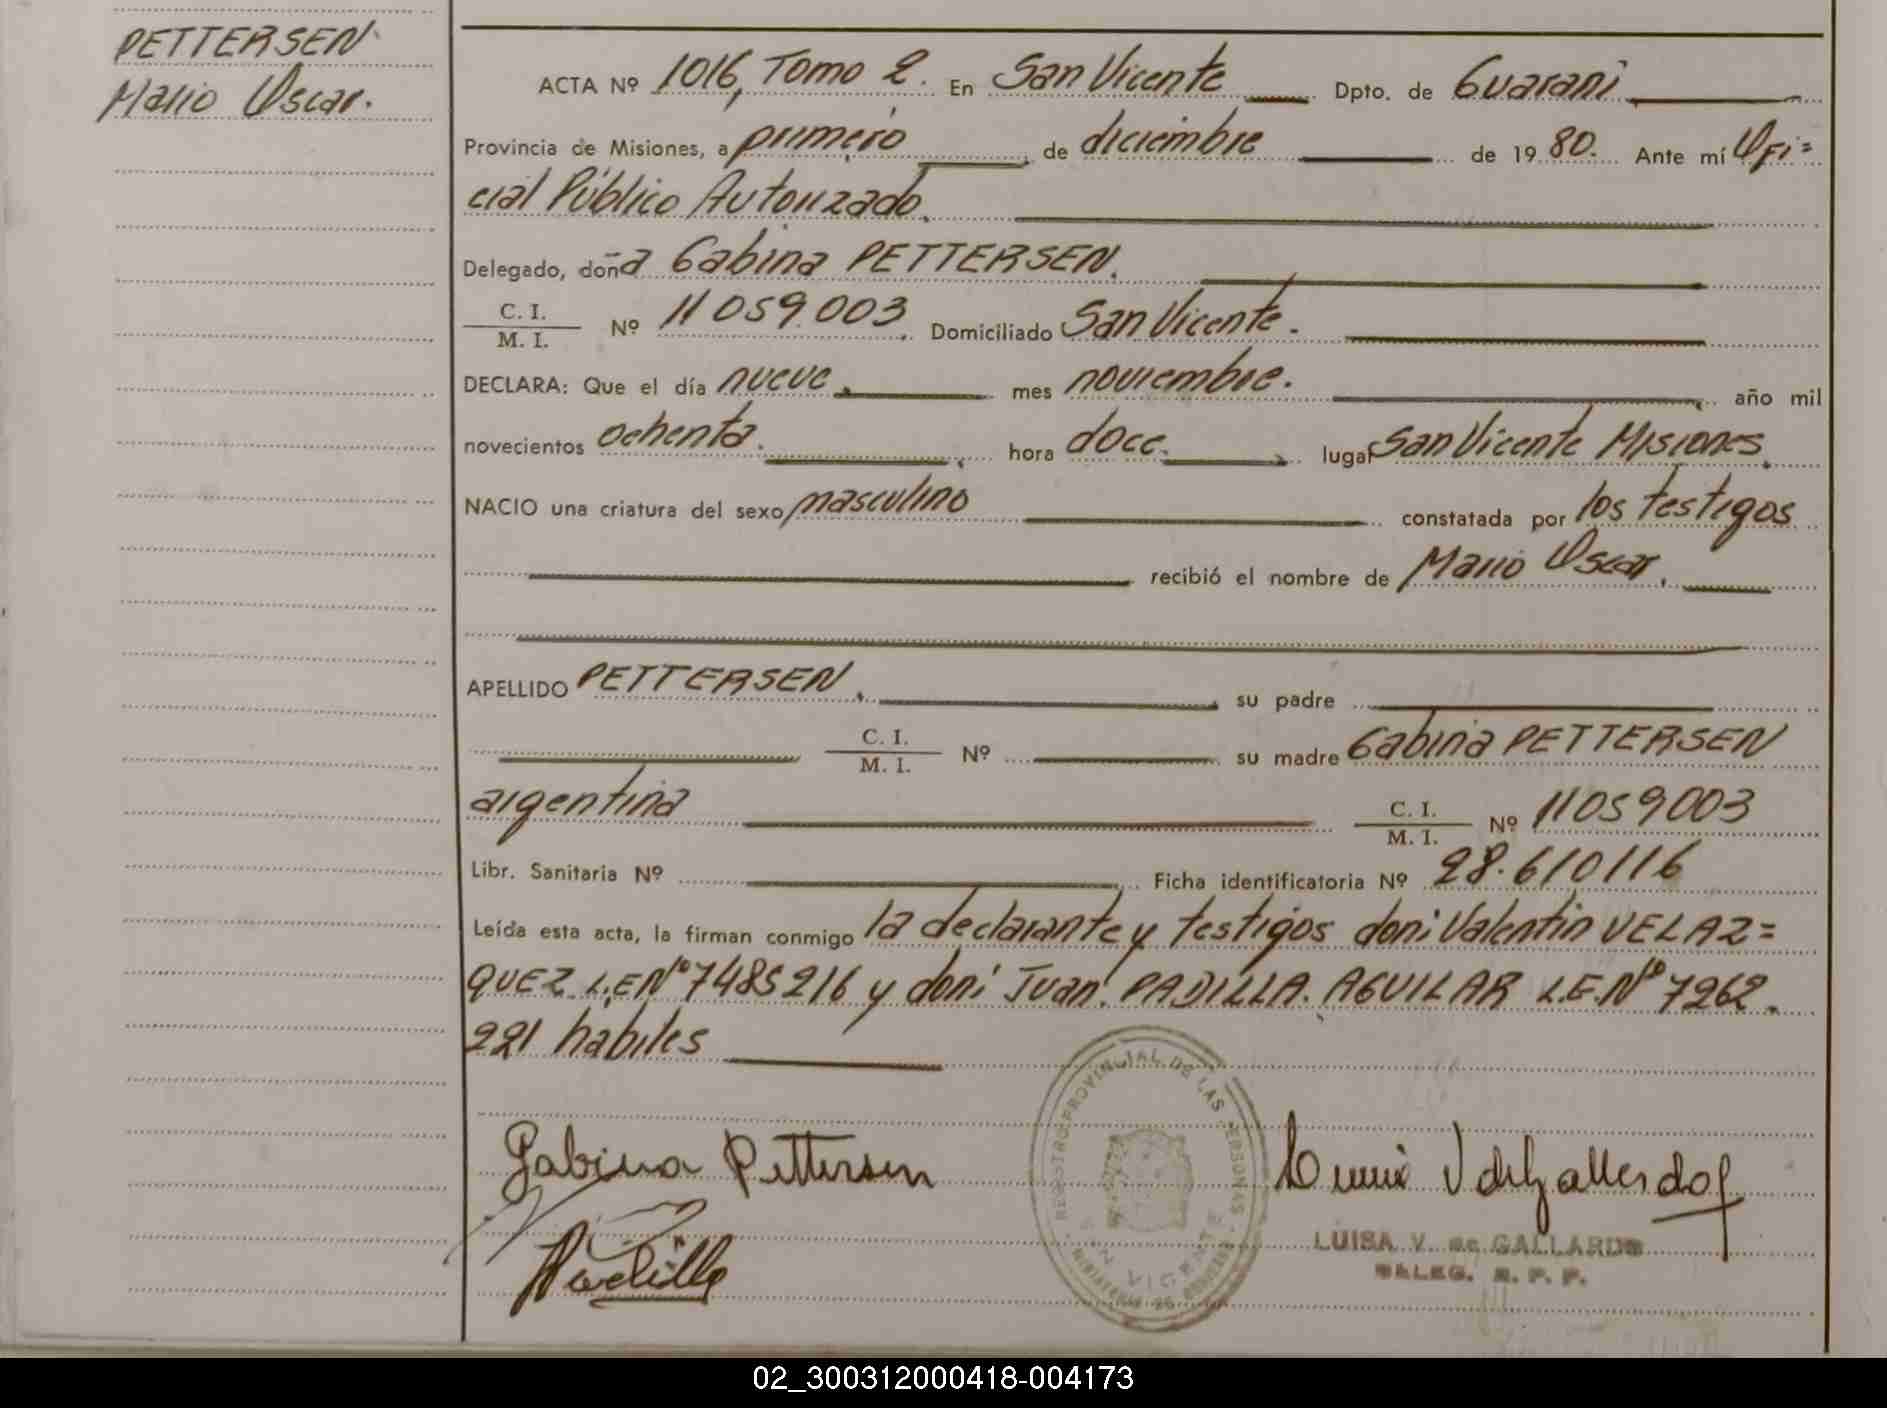 PETTERSEN
Mario Oscar.
ACTA Nº 1016, Tomo 2. En San Vicente Dpto. de Guaraní
Provincia de Misiones, a primero de diciembre de 1980. Ante mí Ofi=
cial Público Autorizado.
Delegado, doña Gabina PETTERSEN.
C. I.
M. I. Nº 11059.003. Domiciliado San Vicente.
DECLARA: Que el día nueve, mes noviembre. año mil
novecientos ochenta. hora doce. lugar San Vicente Misiones.
NACIO una criatura del sexo masculino constatada por los testigos
recibió el nombre de Mario Oscar.
APELLIDO PETTERSEN. su padre
C. I.
M. I. Nº su madre Gabina PETTERSEN
argentina C. I.
M. I. Nº 11059003
Libr. Sanitaria Nº Ficha identificatoria Nº 28.610116
Leída esta acta, la firman conmigo la declarante y testigos don: Valentin VELAZ=
QUEZ L.E.Nº 7485216 y don: Juan. PADILLA. AGUILAR L.E.Nº 7262.
221 hábiles
REGISTRO PROVINCIAL DE LAS PERSONAS
SAN VICENTE
Gabina Pettersen
Padilla
LUISA V. de GALLARDO
DELEG. R. P. P.
02_300312000418-004173